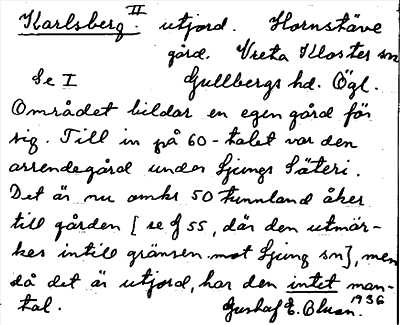 Karlsberg II. utjord. Hornstäve
gård. Vreta Kloster sn
Se I Gullbergs hd. Ögl.
Området bildar en egen gård för
sig. Till in på 60-talet var den
arrendegård under Ljungs Säteri.
Det är nu omkr 50 tunnland åker
till gården [se § 55, där den utmär-
kes intill gränsen mot Ljung sn], men
då det är utjord, har den intet man-
tal. Gustaf E. 1936